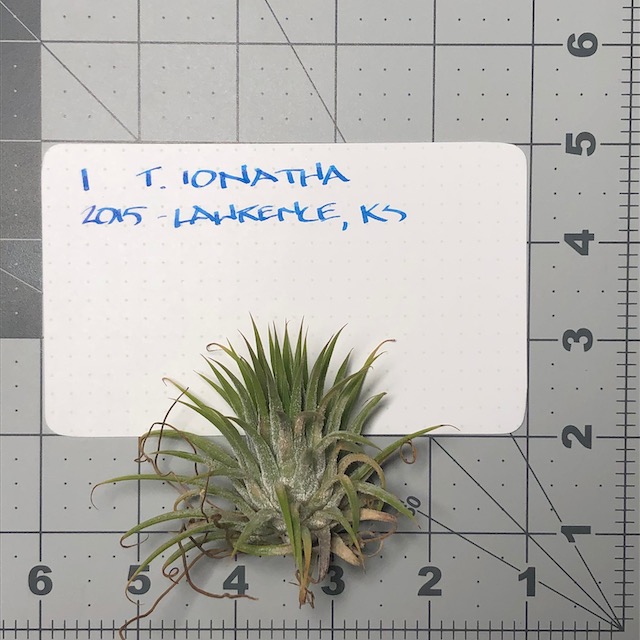 1 T. IONATHA
2015 - LAWRENCE, KS
6
5
4
3
2
1
6 5 4 3 2 1